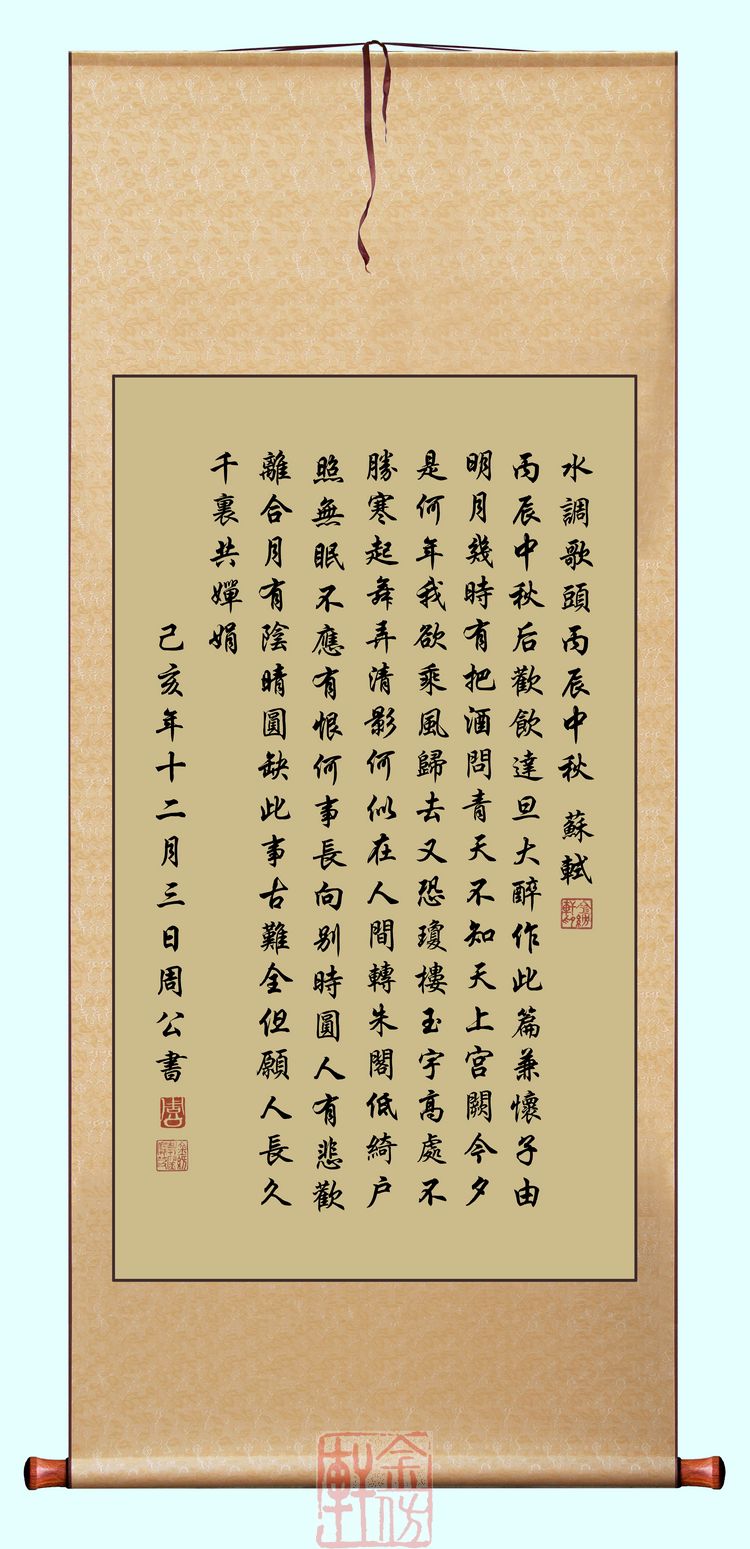 水調歌頭丙辰中秋 蘇軾
丙辰中秋后歡飲達旦大醉作此篇兼懷子由
明月幾時有把酒問青天不知天上宮闕今夕
是何年我欲乘風歸去又恐瓊樓玉宇高處不
勝寒起舞弄清影何似在人間轉朱閣低綺户
照無眠不應有恨何事長向别時圓人有悲歡
離合月有陰晴圓缺此事古難全但願人長久
千裏共嬋娟
己亥年十二月三日周公書
金仿軒